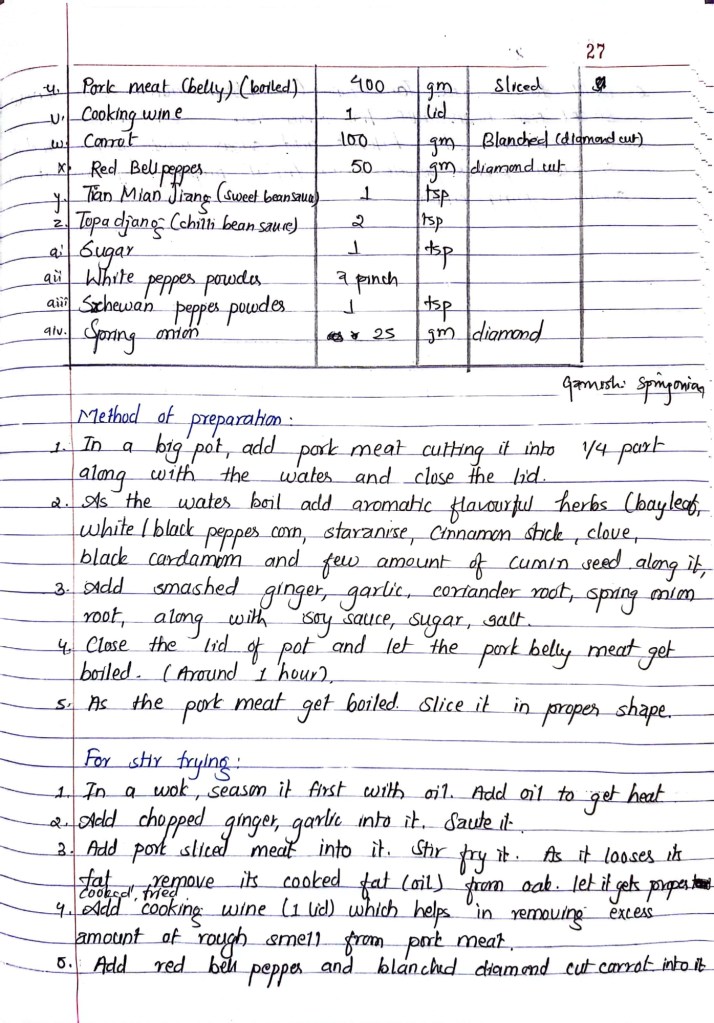 27
u. Pork meat (belly) (boiled) 400 gm Sliced
v. Cooking wine 1 lid
w. Carrot 100 gm Blanched (diamond cut)
x. Red Bell pepper 50 gm diamond cut
y. Tian Mian Jiang (sweet bean sauce) 1 tsp
z. Topa djang (chilli bean sauce) 2 tsp
ai Sugar 1 tsp
aii White pepper powder a pinch
aiii Szchewan pepper powder 1 tsp
aiv. Spring onion 25 gm diamond
Garnish: Spring onion
Method of preparation:
1. In a big pot, add pork meat cutting it into 1/4 part
along with the water and close the lid.
2. As the water boil add aromatic flavourful herbs (bayleaf,
white / black pepper corn, staranise, cinnamon stick, clove,
black cardamom and few amount of cumin seed along it,
3. Add smashed ginger, garlic, coriander root, spring onion
root, along with soy sauce, sugar, salt.
4. Close the lid of pot and let the pork belly meat get
boiled. (Around 1 hour).
5. As the pork meat get boiled. Slice it in proper shape.
For stir frying:
1. In a wok, season it first with oil. Add oil to get heat
2. Add chopped ginger, garlic into it. Saute it.
3. Add pork sliced meat into it. Stir fry it. As it looses its
fat remove its cooked fat (oil) from let it gets proper
cooked, fried
4. Add cooking wine (1 lid) which helps in removing excess
amount of rough smell from pork meat.
5. Add red bell pepper and blanched diamond cut carrot into it